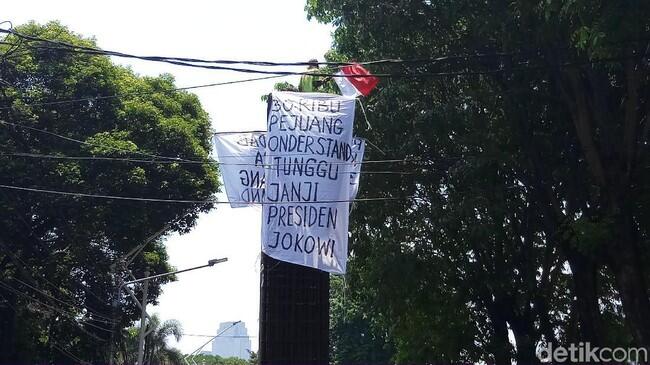 30 RIBU
PEJUANG
ONDERSTAND
TUNGGU
JANJI
PRESIDEN
JOKOWI
detikcom